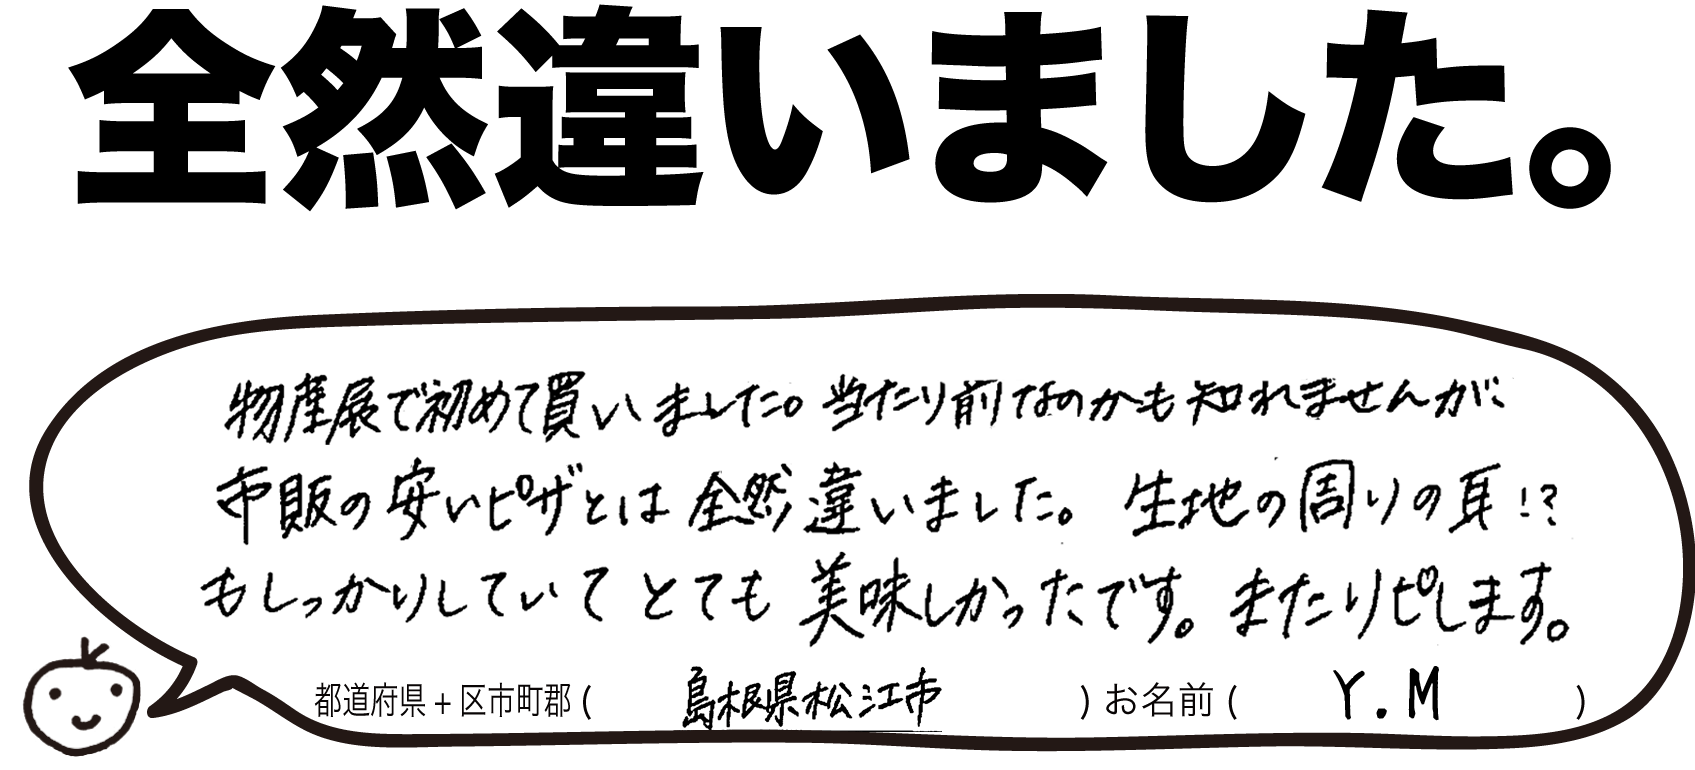 全然違いました。
物産展で初めて買いました。当たり前なのかも知れませんが、
市販の安いピザとは全然違いました。生地の周りの耳!?
もしっかりしていてとても美味しかったです。またリピします。
都道府県+区市町郡( 島根県松江市 )お名前( Y.M )